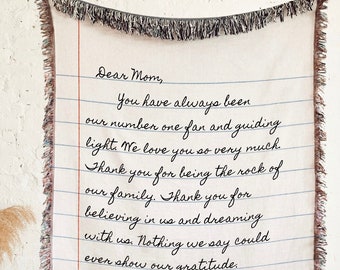 Dear Mom,
You have always been
our number one fan and guiding
light. We love you so very much.
Thank you for being the rock of
our family. Thank you for
believing in us and dreaming
with us. Nothing we say could
ever show our gratitude.